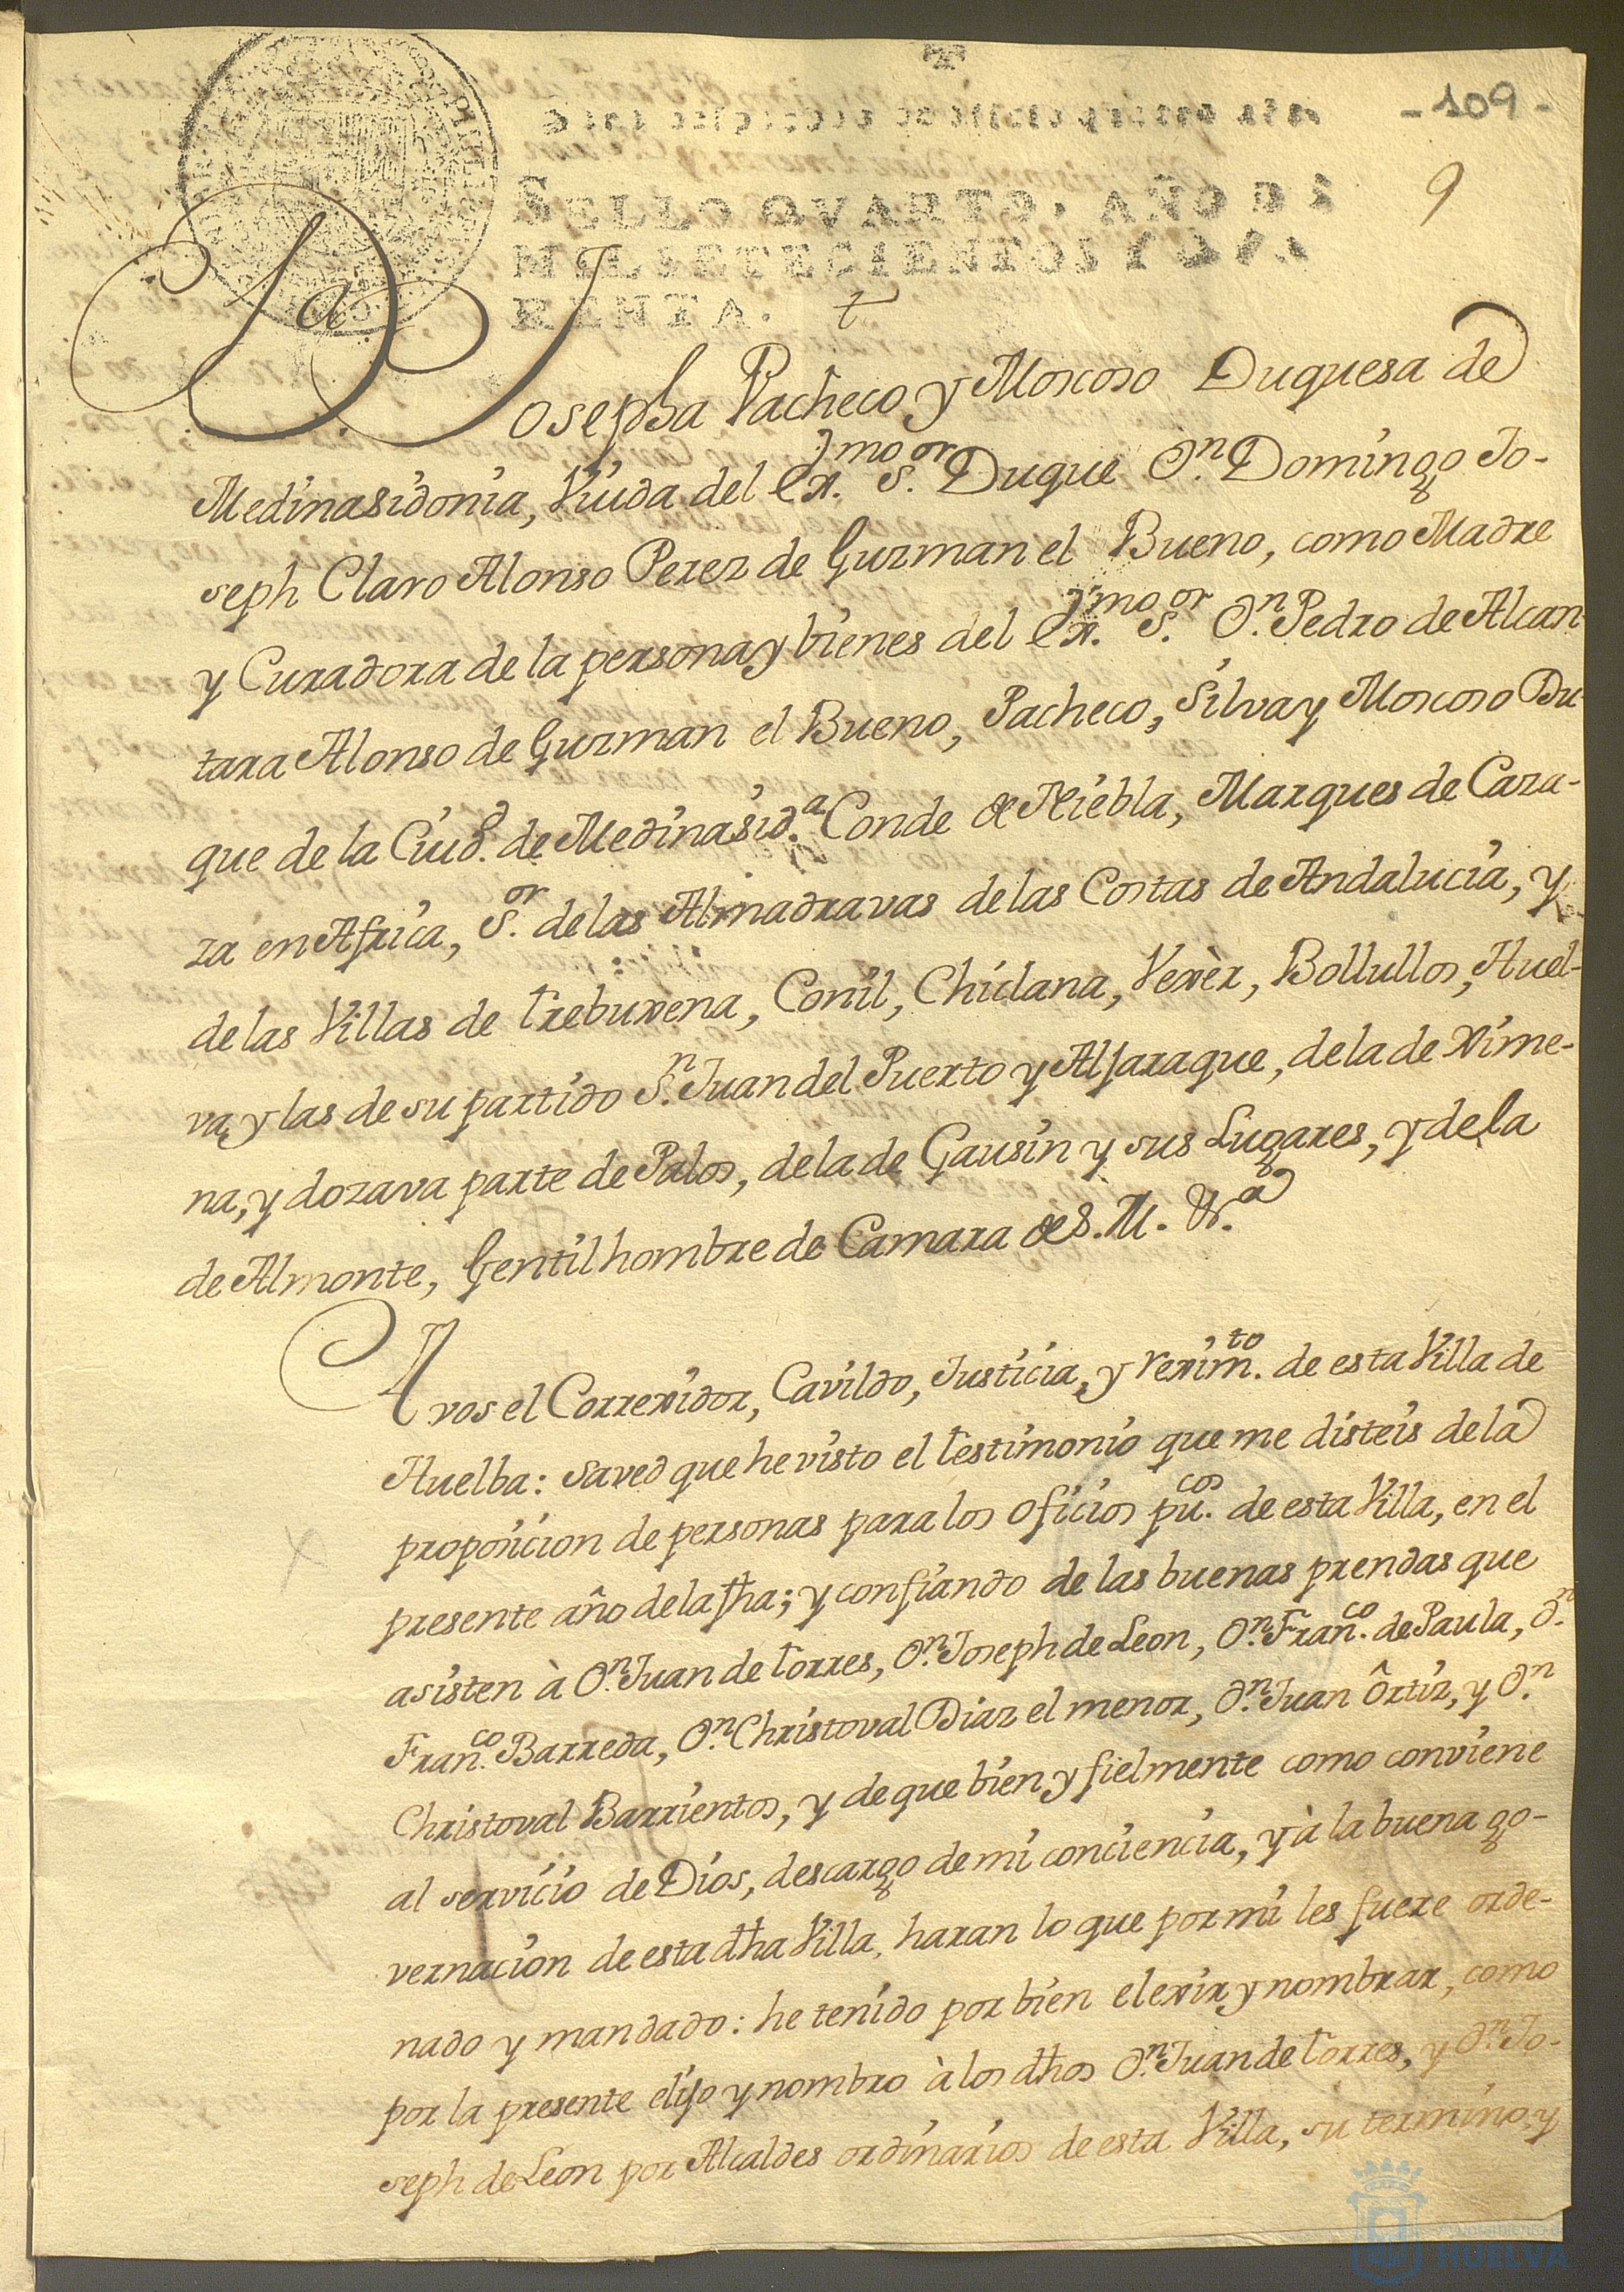 - 109 -
9
SELLO QVARTO, AÑO DE
MIL SETECIENTOS Y QVA
RENTA.
La Josepha Pacheco y Moscoso Duquesa de
Medinasidonia, Viuda del Ex.mo S.or Duque D.n Domingo Jo-
seph Claro Alonso Perez de Guzman el Bueno, como Madre
y Curadora de la persona y bienes del Ex.mo S.or D.n Pedro de Alcan-
tara Alonso de Guzman el Bueno, Pacheco, Silva y Moscoso Du-
que de la Ciud.d de Medinasid.a Conde de Niebla, Marques de Caza-
za en Africa, S.or de las Almadravas de las Costas de Andalucia, y
de las Villas de Trebuxena, Conil, Chiclana, Vexèr, Bollullos, Huel-
va, y las de su partido S.n Juan del Puerto y Aljaraque, de la de Xime-
na, y dozava parte de Palos, de la de Gausin y sus Lugares, y de la
de Almonte, Gentilhombre de Camara de S. M. &.a
A vos el Correxidor, Cavildo, Justicia, y rexim.to de esta Villa de
Huelba: saved que he visto el testimonio que me disteis de la
proposicion de personas para los oficios pu.cos de esta Villa, en el
presente año de la fha; y confiando de las buenas prendas que
asisten à D.n Juan de torres, D.n Joseph de Leon, D.n Fran.co de Paula, D.n
Fran.co Barreda, D.n Christoval Diaz el menor, D.n Juan Ôrtiz, y D.n
Christoval Barrientos, y de que bien y fielmente como conviene
al servicio de Dios, descargo de mi conciencia, y à la buena go-
vernacion de esta dha Villa, haran lo que por mi les fuere orde-
nado y mandado: he tenido por bien elexir y nombrar, como
por la presente elijo y nombro à los dhos D.n Juan de torres, y D.n Jo-
seph de Leon por Alcaldes ordinarios de esta Villa, su termino, y
Ayuntamiento de
HUELVA